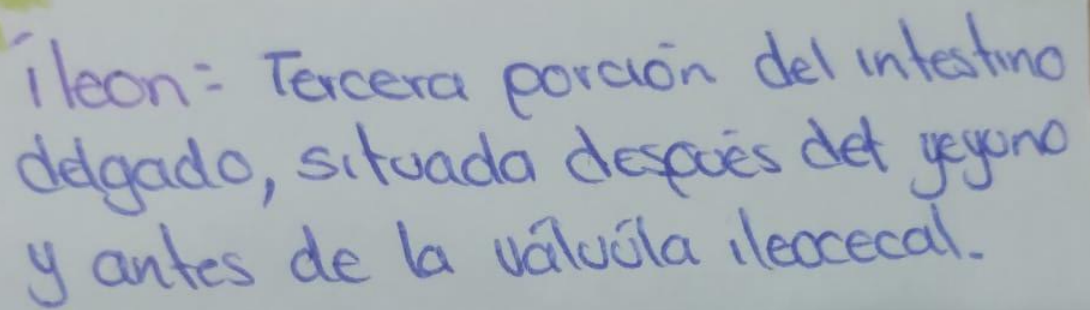 íleon: Tercera porción del intestino
delgado, situada después del yeyuno
y antes de la válvúla ileocecal.